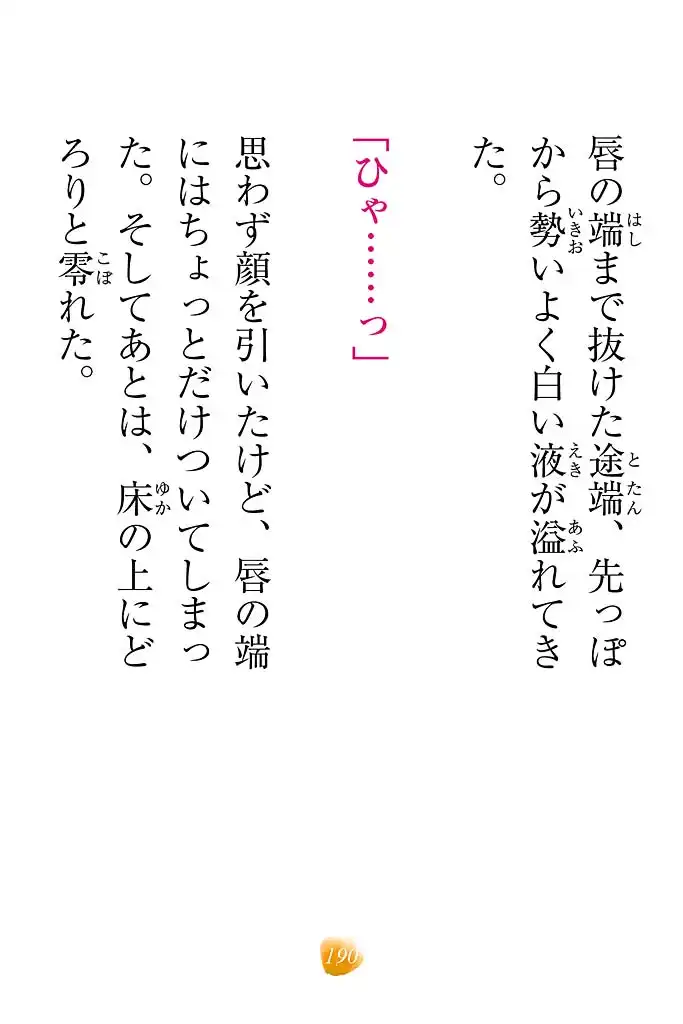 唇の端まで抜けた途端、先っぽ
から勢いよく白い液が溢れてき
た。
「ひゃ……っ」
思わず顔を引いたけど、唇の端
にはちょっとだけついてしまっ
た。そしてあとは、床の上にど
ろりと零れた。
はし
とたん
いきお
えき
あふ
ゆか
こぼ
190